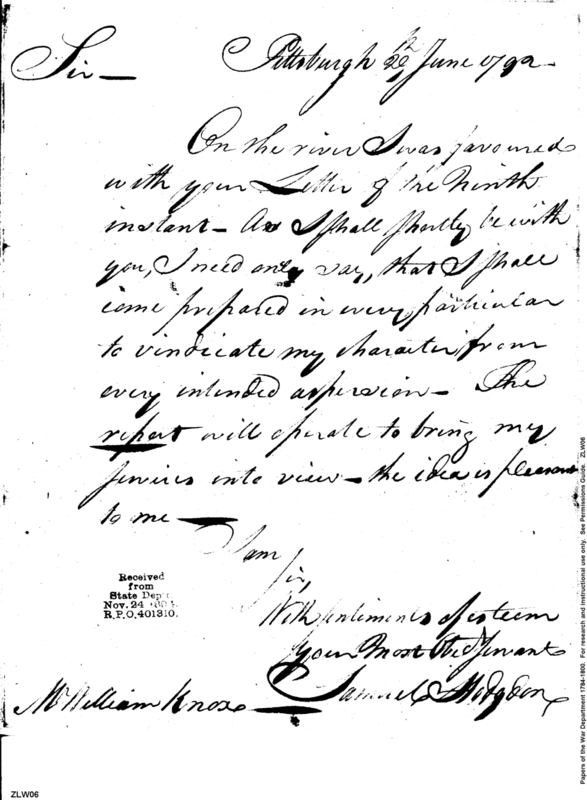 Pittsburgh 22 June 1792
Sir
On the river I was favoured
with your Letter of the Ninth
instant – As I shall shortly be with
you, I need only say, that I shall
come prepared in every particular
to vindicate my character from
every intended aspersion – The
report will operate to bring my
services into view – the idea is pleasant
to me
I am
Sir,
With sentiments of esteem
your Most Obed Servant
Samuel Hodgdon
Mr William Knox
Received
from
State Dep't.
Nov. 24
R.P.O. 401310.
ZLW06
Papers of the War Department 1784-1800. For research and instructional use only. See Permissions Guide. ZLW06